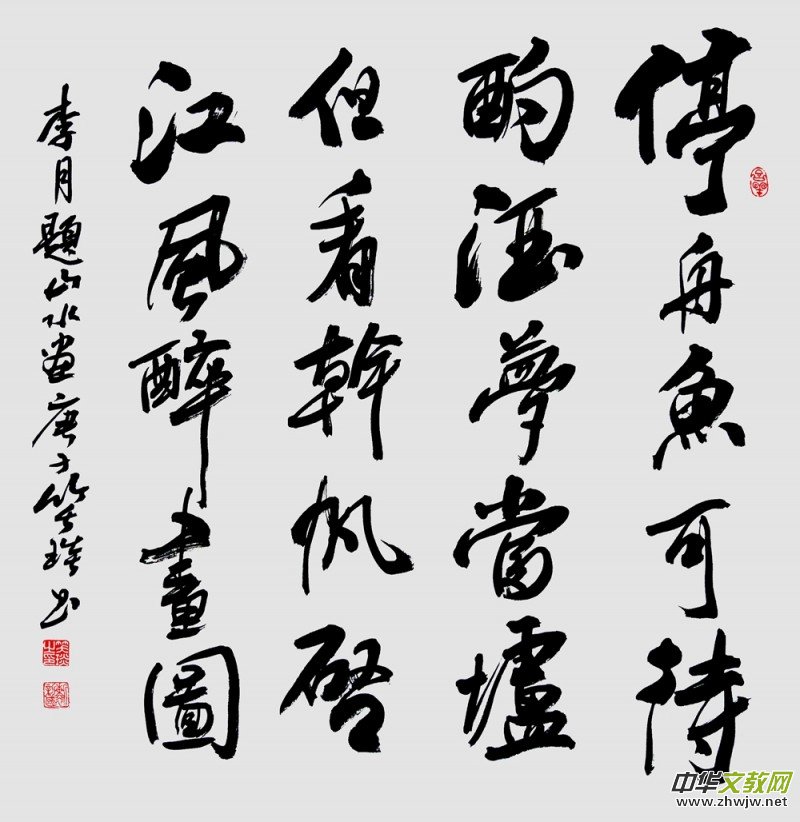 停舟魚可待
酌酒夢當壚
但看幹帆啓
江風醉畫圖
李月題山水畫庚子書
中华文教网
www.zhwjw.net